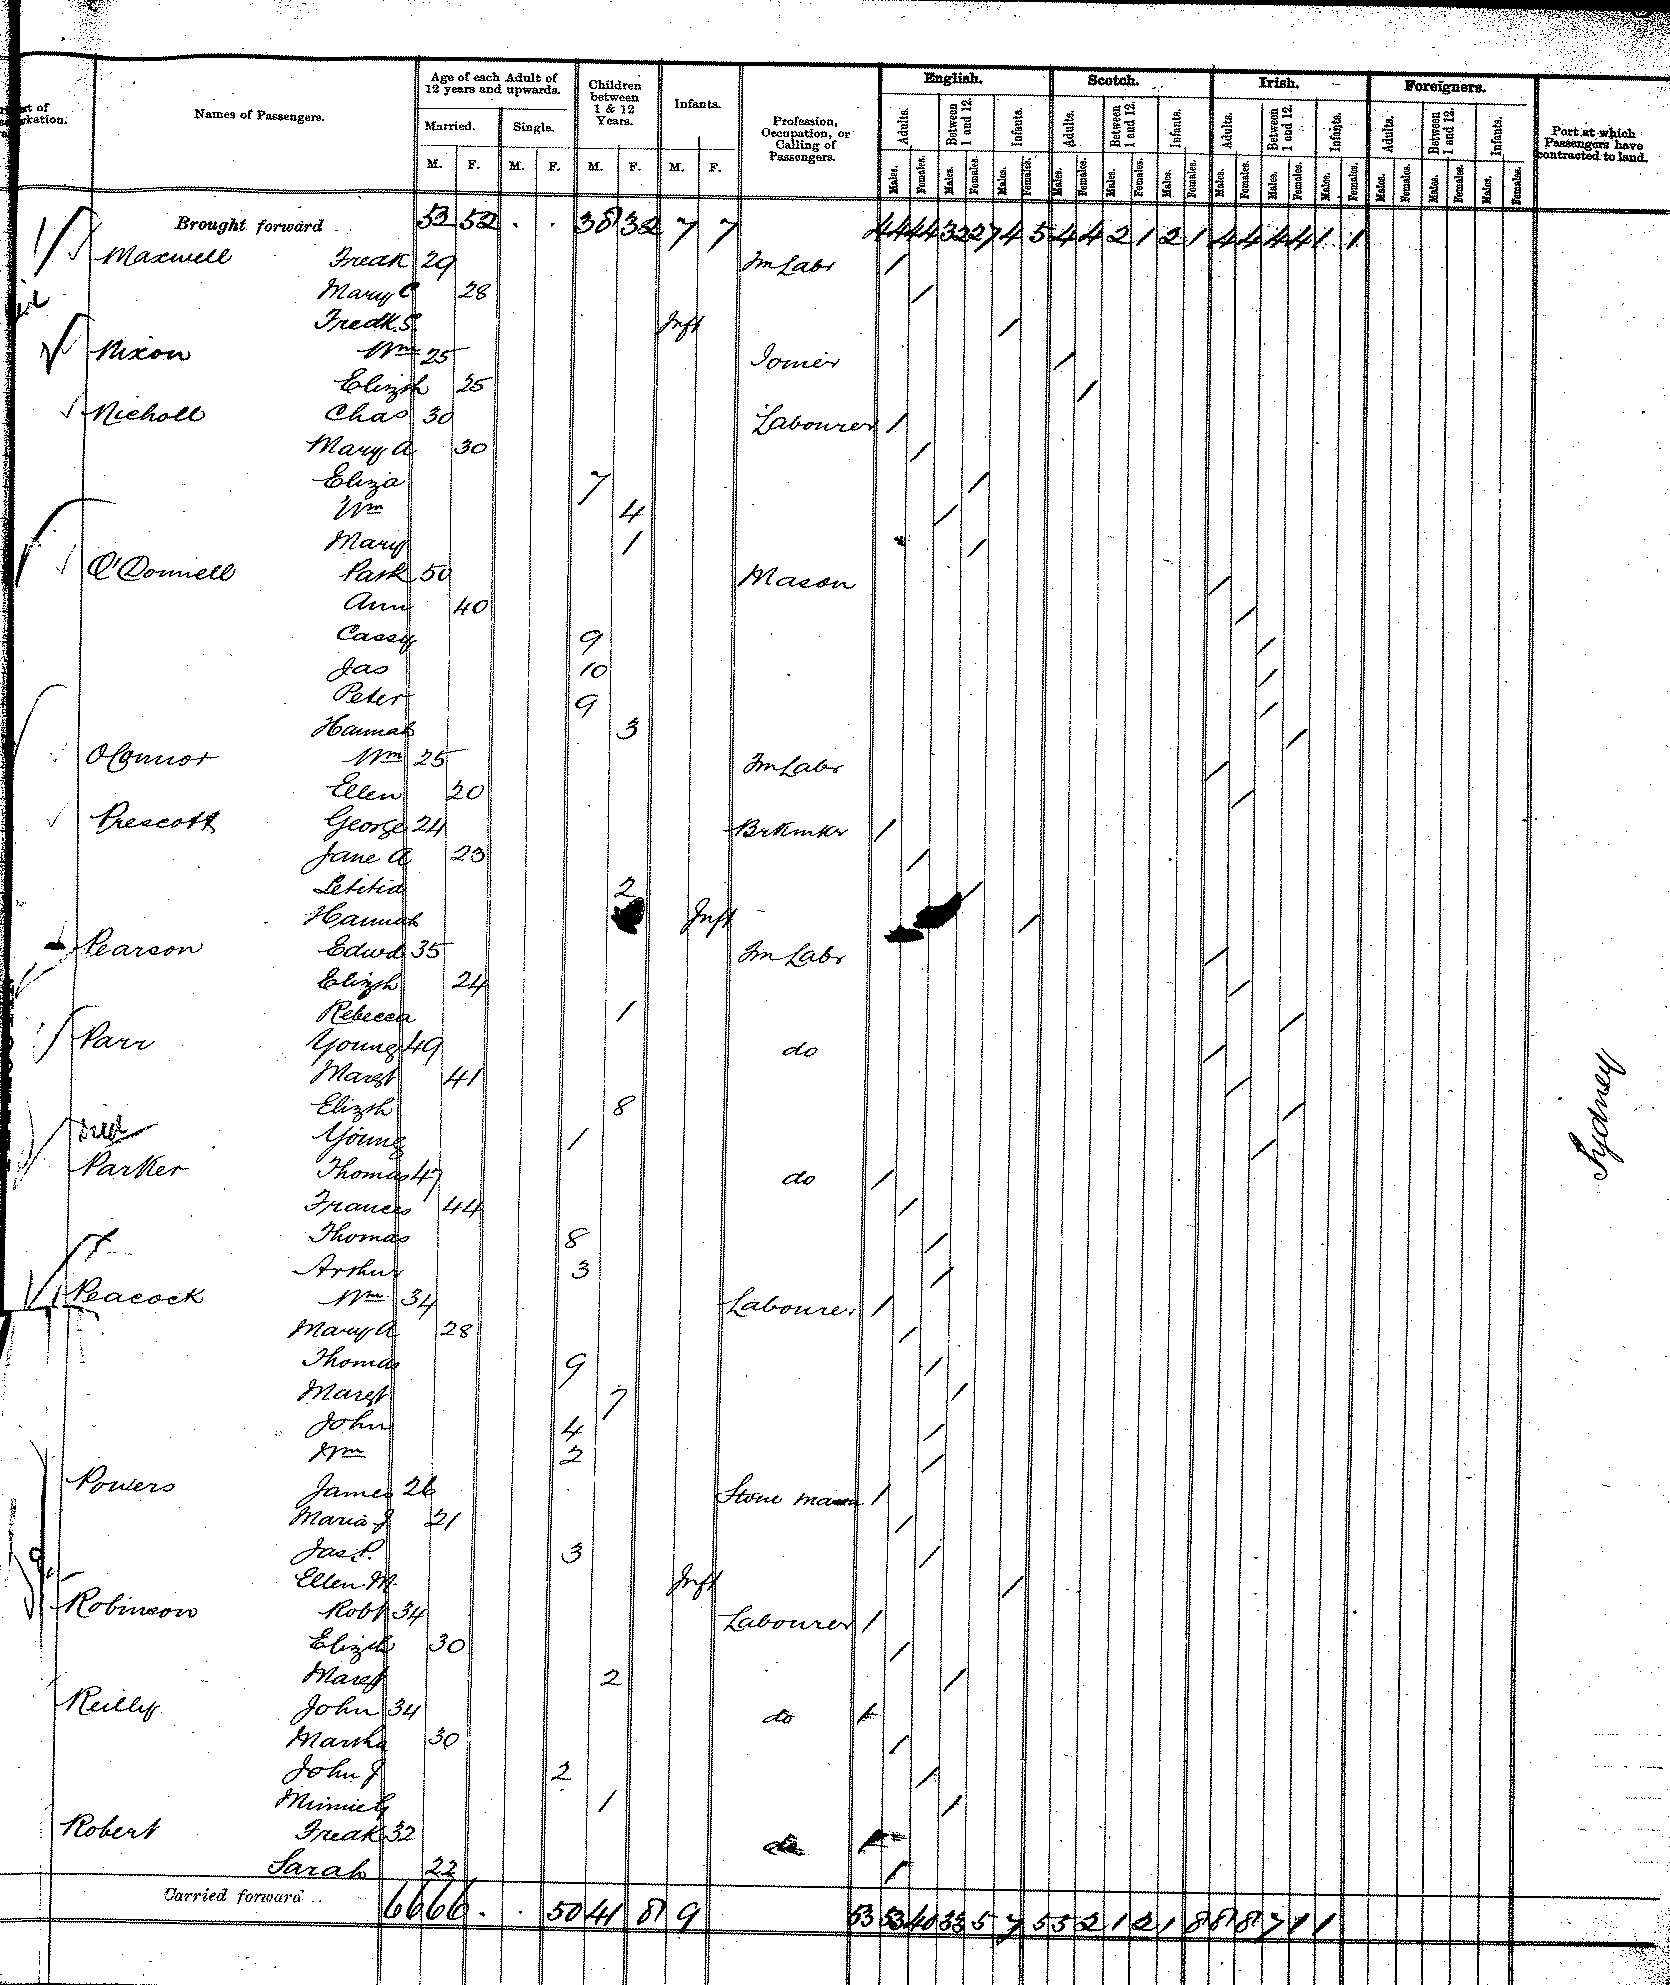 Age of each Adult of 12 years and upwards. Children between 1 & 12 Years. Infants. English. Scotch. Irish. Foreigners.
Names of Passengers. Married. Single. Profession, Occupation, or Calling of Passengers. Adults. Between 1 and 12. Infants. Adults. Between 1 and 12. Infants. Adults. Between 1 and 12. Infants. Adults. Between 1 and 12. Infants. Port at which Passengers have contracted to land.
M. F. M. F. M. F. M. F. Males. Females. Males. Females. Males. Females. Males. Females. Males. Females. Males. Females. Males. Females. Males. Females. Males. Females. Males. Females. Males. Females. Males. Females.
Brought forward 53 52 . . 38 32 7 7 44 44 32 27 4 5 4 4 2 1 2 1 4 4 4 4 1 1
Maxwell Fredk 29 Fm Labr /
Mary C 28 /
Fredk S. Inft /
Nixon Wm 25 Joiner /
Elizth 25 /
Nicholl Chas 30 Labourer /
Mary A 30 /
Eliza 7 /
Wm 4 /
Mary 1 /
O'Connell Patk 50 Mason /
Ann 40 /
Cassy 9 /
Jas 10 /
Peter 9 /
Hannah 3 /
O'Connor Wm 25 Fm Labr /
Ellen 20 /
Prescott George 24 Brkmkr /
Jane A 23 /
Letitia 2 /
Hannah Inft /
Pearson Edwd 35 Fm Labr /
Elizth 24 /
Rebecca 1 /
Parr Young 49 do /
Margt 41 /
Elizth 8 /
Young 1 /
Parker Thomas 47 do /
Frances 44 /
Thomas 8 /
Arthur 3 /
Peacock Wm 34 Labourer /
Mary A 28 /
Thomas 9 /
Margt 7 /
John 4 /
Wm 2 /
Powers James 26 Stone mason /
Maria J 21 /
Jas P. 3 /
Ellen M. Inft /
Robinson Robt 34 Labourer /
Elizth 30 /
Margt 2 /
Reilly John 34 do /
Martha 30 /
John J 2 /
Minnie G 1 /
Robert Fredk 32 do /
Sarah 22 /
Carried forward 66 66 . . 50 41 8 9 53 53 40 33 5 7 5 5 2 1 2 1 8 8 8 7 1 1
Sydney